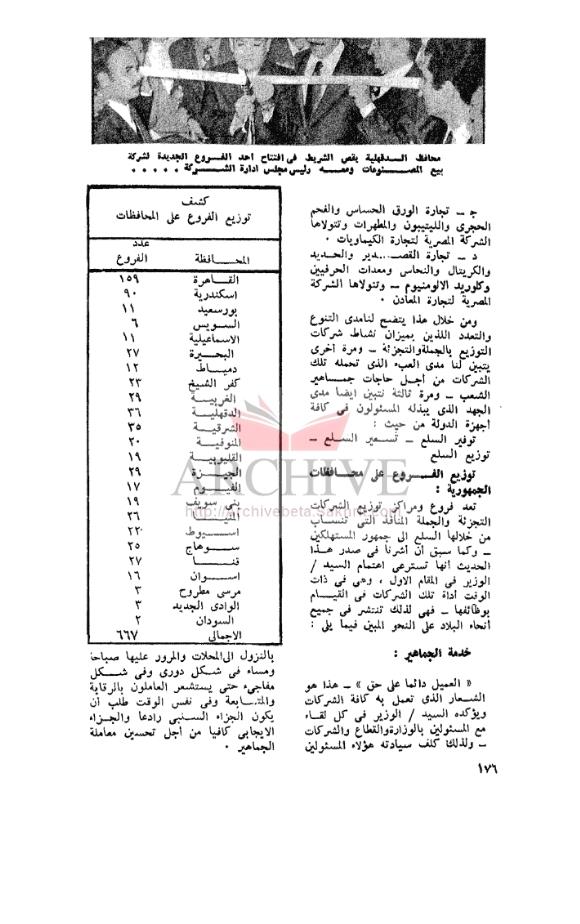 محافظ الـدقهلية يقص الشريط فى افتتاح احد الفـروع الجديدة لشركة
بيع المصـنوعات ومعـه رئيس مجلس ادارة الشـركة . . . . .
جـ ــ تجارة الورق الحساس والفحم
الحجرى والليتيبون والمطهرات وتتولاها
الشركة المصرية لتجارة الكيماويات .
د ــ تجارة القصـدير والحـديد
والكريتال والنحاس ومعدات الحرفيين
وكلوريد الالومنيوم ــ وتتولاها الشركة
المصرية لتجارة المعادن .
ومن خلال هذا يتضح لنامدى التنوع
والتعدد اللذين يميزان نشاط شركات
التوزيع بالجملةوالتجزئة ــ ومرة أخرى
يتبين لنا مدى العبء الذى تحمله تلك
الشركات من أجـل حاجات جمـاهير
الشعب ــ ومرة ثالثة نتبين أيضا مدى
الجهد الذى يبذله المسئولون فى كافة
أجهزة الدولة من حيث :
توفير السلع ــ تسعير السلع ــ
توزيع السلع
توزيع الفـروع على محـافظات
الجمهورية :
تعد فروع ومراكز توزيع الشركات
التجزئة والجملة المنافذ التى تنساب
من خلالها السلع الى جمهور المستهلكين
ــ وكما سبق أن أشرنا فى صدر هـذا
الحديث أنها تسترعى اهتمام السيد /
الوزير فى المقام الاول ، وهى فى ذات
الوقت أداة تلك الشركات فى القيـام
بوظائفها ــ فهى لذلك تنتشر فى جميع
أنحاء البلاد على النحو المبين فيما يلى :
خدمة الجماهير :
« العميل دائما على حق » ــ هذا هو
الشـعار الذى تعمل به كافة الشركات
ويؤكده السيد / الوزير فى كل لقاء
مع المسئولين بالوزارةوالقطاع والشركات
ــ ولذلك كلف سيادته هؤلاء المسئولين
كشف
توزيع الفروع على المحافظات
المحـافظة عدد الفروع
القـاهرة ١٥٩
اسكندرية ٩٠
بورسعيد ١١
السـويس ٦
الاسماعيلية ١١
البحـيرة ٢٧
دميـاط ١٢
كفر الشيخ ٢٣
الغربيـة ٢٩
الدقهليـة ٣٦
الشرقيـة ٣٥
المنوفيـة ٢٠
القليوبيـة ١٩
الجيـزة ٢٩
الفيـوم ١٧
بنى سويف ١٩
المنيـا ٢٦
أسـيوط ٢٢
سـوهاج ٢٥
قنـا ٢٧
أسـوان ١٦
مرسى مطروح ٣
الوادى الجديد ٣
السودان ٢
الاجمالى ٦٦٧
بالنزول الىالمحلات والمرور عليها صباحا
ومساء فى شـكل دورى وفى شـكل
مفاجىء حتى يستشعر العاملون بالرقابة
والمتـابعة وفى نفس الوقت طلب أن
يكون الجزاء السـلبى رادعا والجـزاء
الايجابى كافيا من أجل تحسين معاملة
الجماهير .
١٧٦
ARCHIVE
http://archivebeta.Sakhrit.com